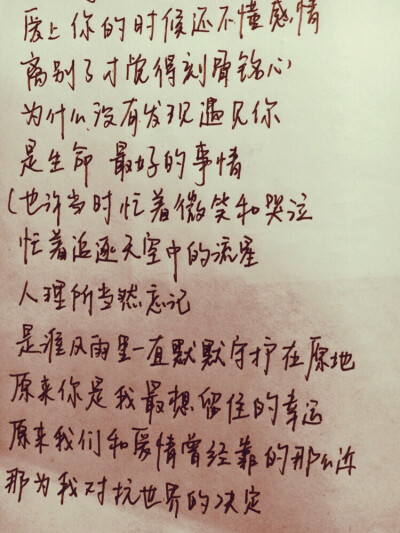 爱上你的时候还不懂感情
离别了才觉得刻骨铭心
为什么没有发现遇见你
是生命 最好的事情
(也许当时忙着微笑和哭泣
忙着追逐天空中的流星
人理所当然忘记
是谁风雨里一直默默守护在原地
原来你是我最想留住的幸运
原来我们和爱情曾经靠的那么近
那为我对抗世界的决定